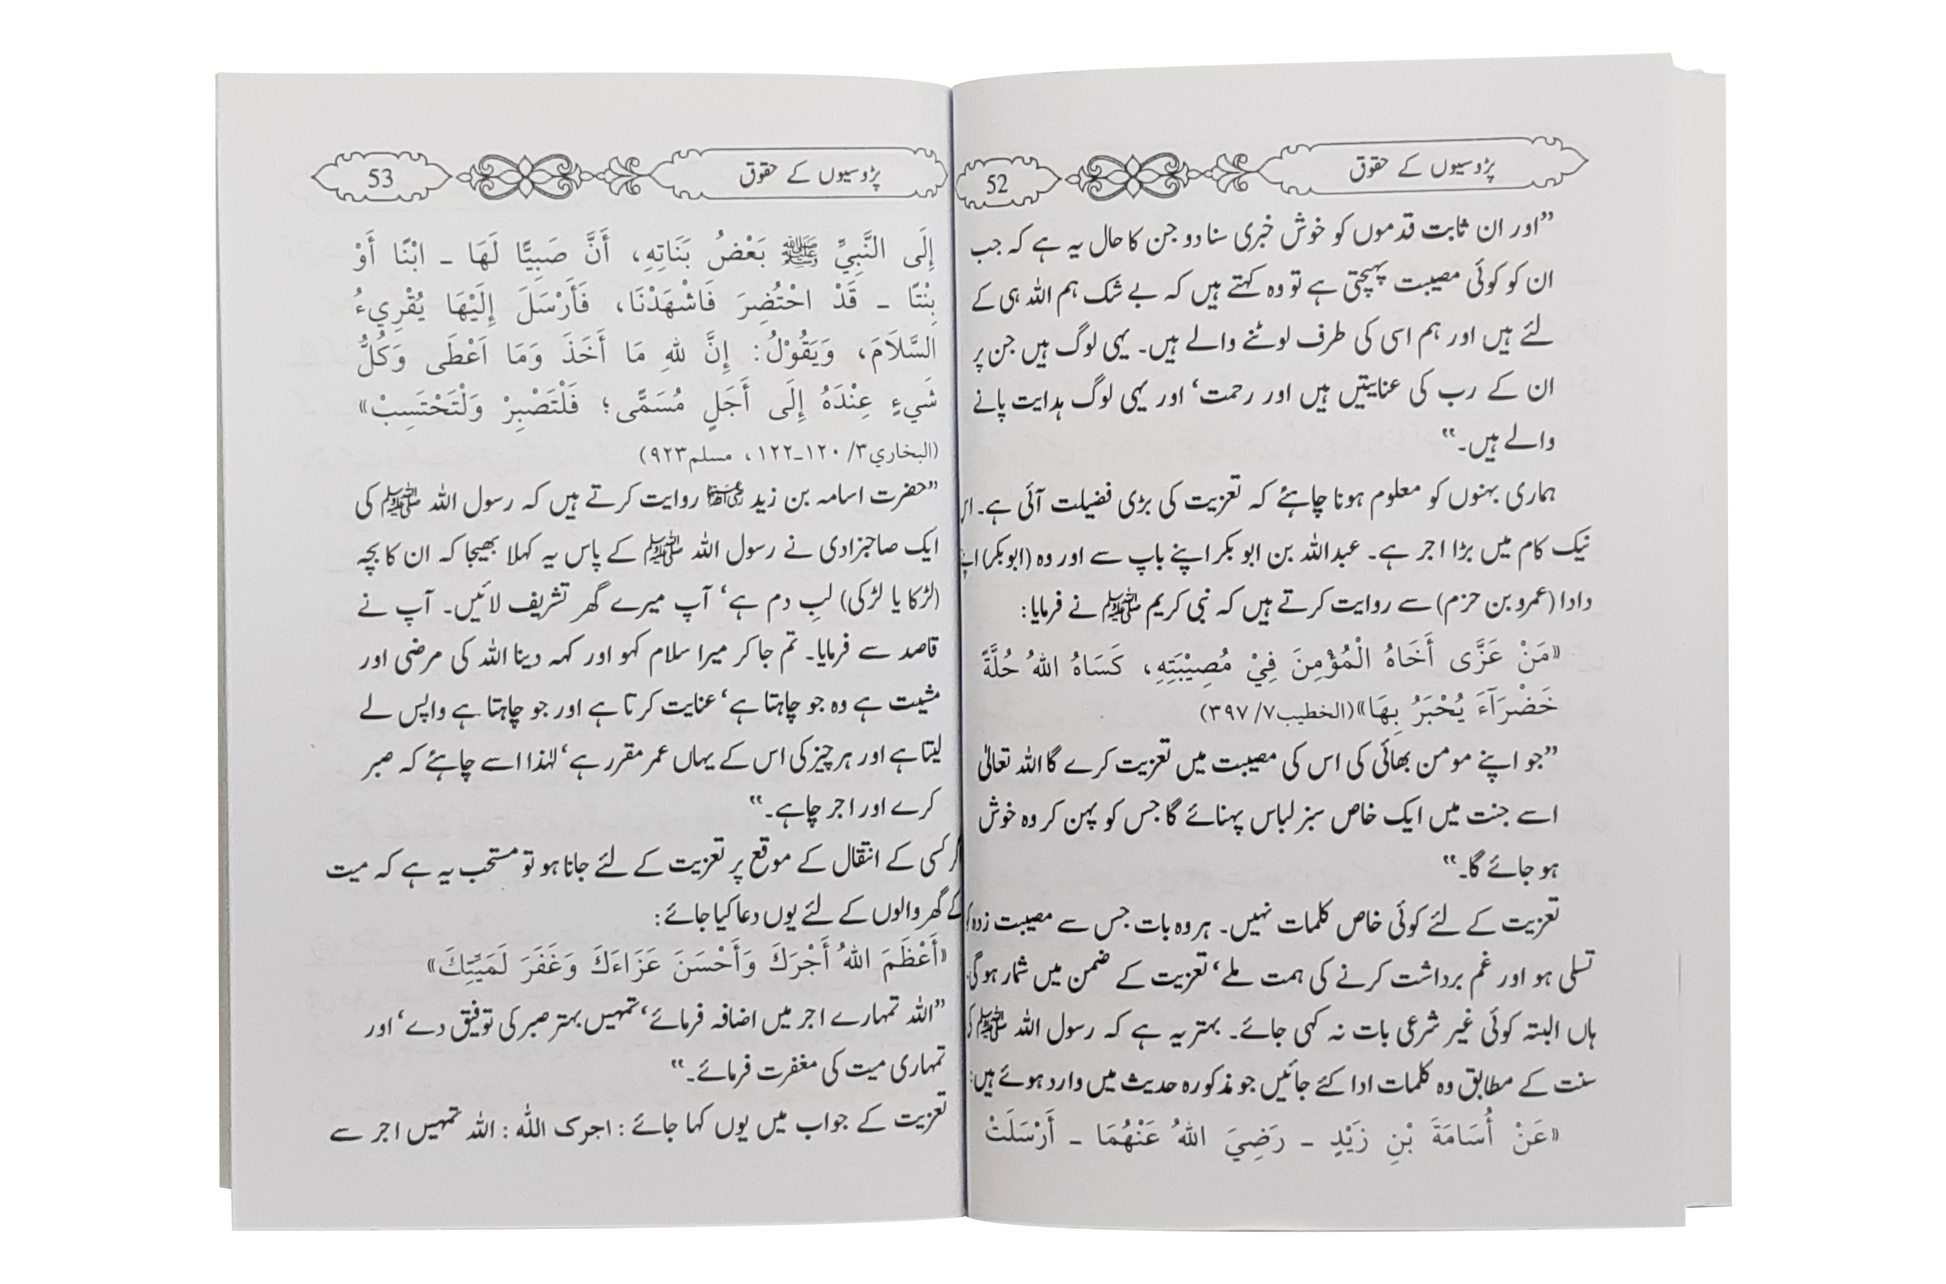 پڑوسیوں کے حقوق
52
”اور ان ثابت قدموں کو خوش خبری سنا دو جن کا حال یہ ہے کہ جب
ان کو کوئی مصیبت پہنچتی ہے تو وہ کہتے ہیں کہ بے شک ہم اللہ ہی کے
لئے ہیں اور ہم اسی کی طرف لوٹنے والے ہیں۔ یہی لوگ ہیں جن پر
ان کے رب کی عنایتیں ہیں اور رحمت‘ اور یہی لوگ ہدایت پانے
والے ہیں۔“
ہماری بہنوں کو معلوم ہونا چاہئے کہ تعزیت کی بڑی فضیلت آئی ہے۔ اس
نیک کام میں بڑا اجر ہے۔ عبداللہ بن ابوبکر اپنے باپ سے اور وہ (ابوبکر) اپنے
دادا (عمرو بن حزم) سے روایت کرتے ہیں کہ نبی کریم ﷺ نے فرمایا:
«مَنْ عَزَّى أَخَاهُ الْمُؤْمِنَ فِيْ مُصِيْبَتِهِ، كَسَاهُ اللهُ حُلَّةً
خَضْرَآءَ يُحْبَرُ بِهَا»(الخطيب٧/ ٣٩٧)
”جو اپنے مومن بھائی کی اس کی مصیبت میں تعزیت کرے گا اللہ تعالیٰ
اسے جنت میں ایک خاص سبز لباس پہنائے گا جس کو پہن کر وہ خوش
ہو جائے گا۔“
تعزیت کے لئے کوئی خاص کلمات نہیں۔ ہر وہ بات جس سے مصیبت زدہ کو
تسلی ہو اور غم برداشت کرنے کی ہمت ملے‘ تعزیت کے ضمن میں شمار ہوگی۔
ہاں البتہ کوئی غیر شرعی بات نہ کہی جائے۔ بہتر یہ ہے کہ رسول اللہ ﷺ کی
سنت کے مطابق وہ کلمات ادا کئے جائیں جو مذکورہ حدیث میں وارد ہوئے ہیں:
«عَنْ أُسَامَةَ بْنِ زَيْدٍ - رَضِيَ اللهُ عَنْهُمَا - أَرْسَلَتْ
پڑوسیوں کے حقوق
53
إِلَى النَّبِيِّ ﷺ بَعْضُ بَنَاتِهِ، أَنَّ صَبِيًّا لَهَا - ابْنًا أَوْ
بِنْتًا - قَدْ احْتُضِرَ فَاشْهَدْنَا، فَأَرْسَلَ إِلَيْهَا يُقْرِيءُ
السَّلاَمَ، وَيَقُوْلُ: إِنَّ للهِ مَا أَخَذَ وَمَا اَعْطَى وَكُلُّ
شَيءٍ عِنْدَهُ إِلَى أَجَلٍ مُسَمًّى؛ فَلْتَصْبِرْ وَلْتَحْتَسِبْ»
(البخاري٣/ ١٢٠-١٢٢، مسلم٩٢٣)
”حضرت اسامہ بن زید رضی اللہ عنہما روایت کرتے ہیں کہ رسول اللہ ﷺ کی
ایک صاحبزادی نے رسول اللہ ﷺ کے پاس یہ کہلا بھیجا کہ ان کا بچہ
(لڑکا یا لڑکی) لبِ دم ہے‘ آپ میرے گھر تشریف لائیں۔ آپ نے
قاصد سے فرمایا۔ تم جا کر میرا سلام کہو اور کہہ دینا اللہ کی مرضی اور
مشیت ہے وہ جو چاہتا ہے‘ عنایت کرتا ہے اور جو چاہتا ہے واپس لے
لیتا ہے اور ہر چیز کی اس کے یہاں عمر مقرر ہے‘ لہٰذا اسے چاہئے کہ صبر
کرے اور اجر چاہے۔“
کسی کے انتقال کے موقع پر تعزیت کے لئے جانا ہو تو مستحب یہ ہے کہ میت
کے گھر والوں کے لئے یوں دعا کیا جائے:
«أَعْظَمَ اللهُ أَجْرَكَ وَأَحْسَنَ عَزَاءَكَ وَغَفَرَ لَمَيِّتِكَ»
”اللہ تمہارے اجر میں اضافہ فرمائے‘ تمہیں بہتر صبر کی توفیق دے‘ اور
تمہاری میت کی مغفرت فرمائے۔“
تعزیت کے جواب میں یوں کہا جائے: اجرک اللّٰہ: اللہ تمہیں اجر سے